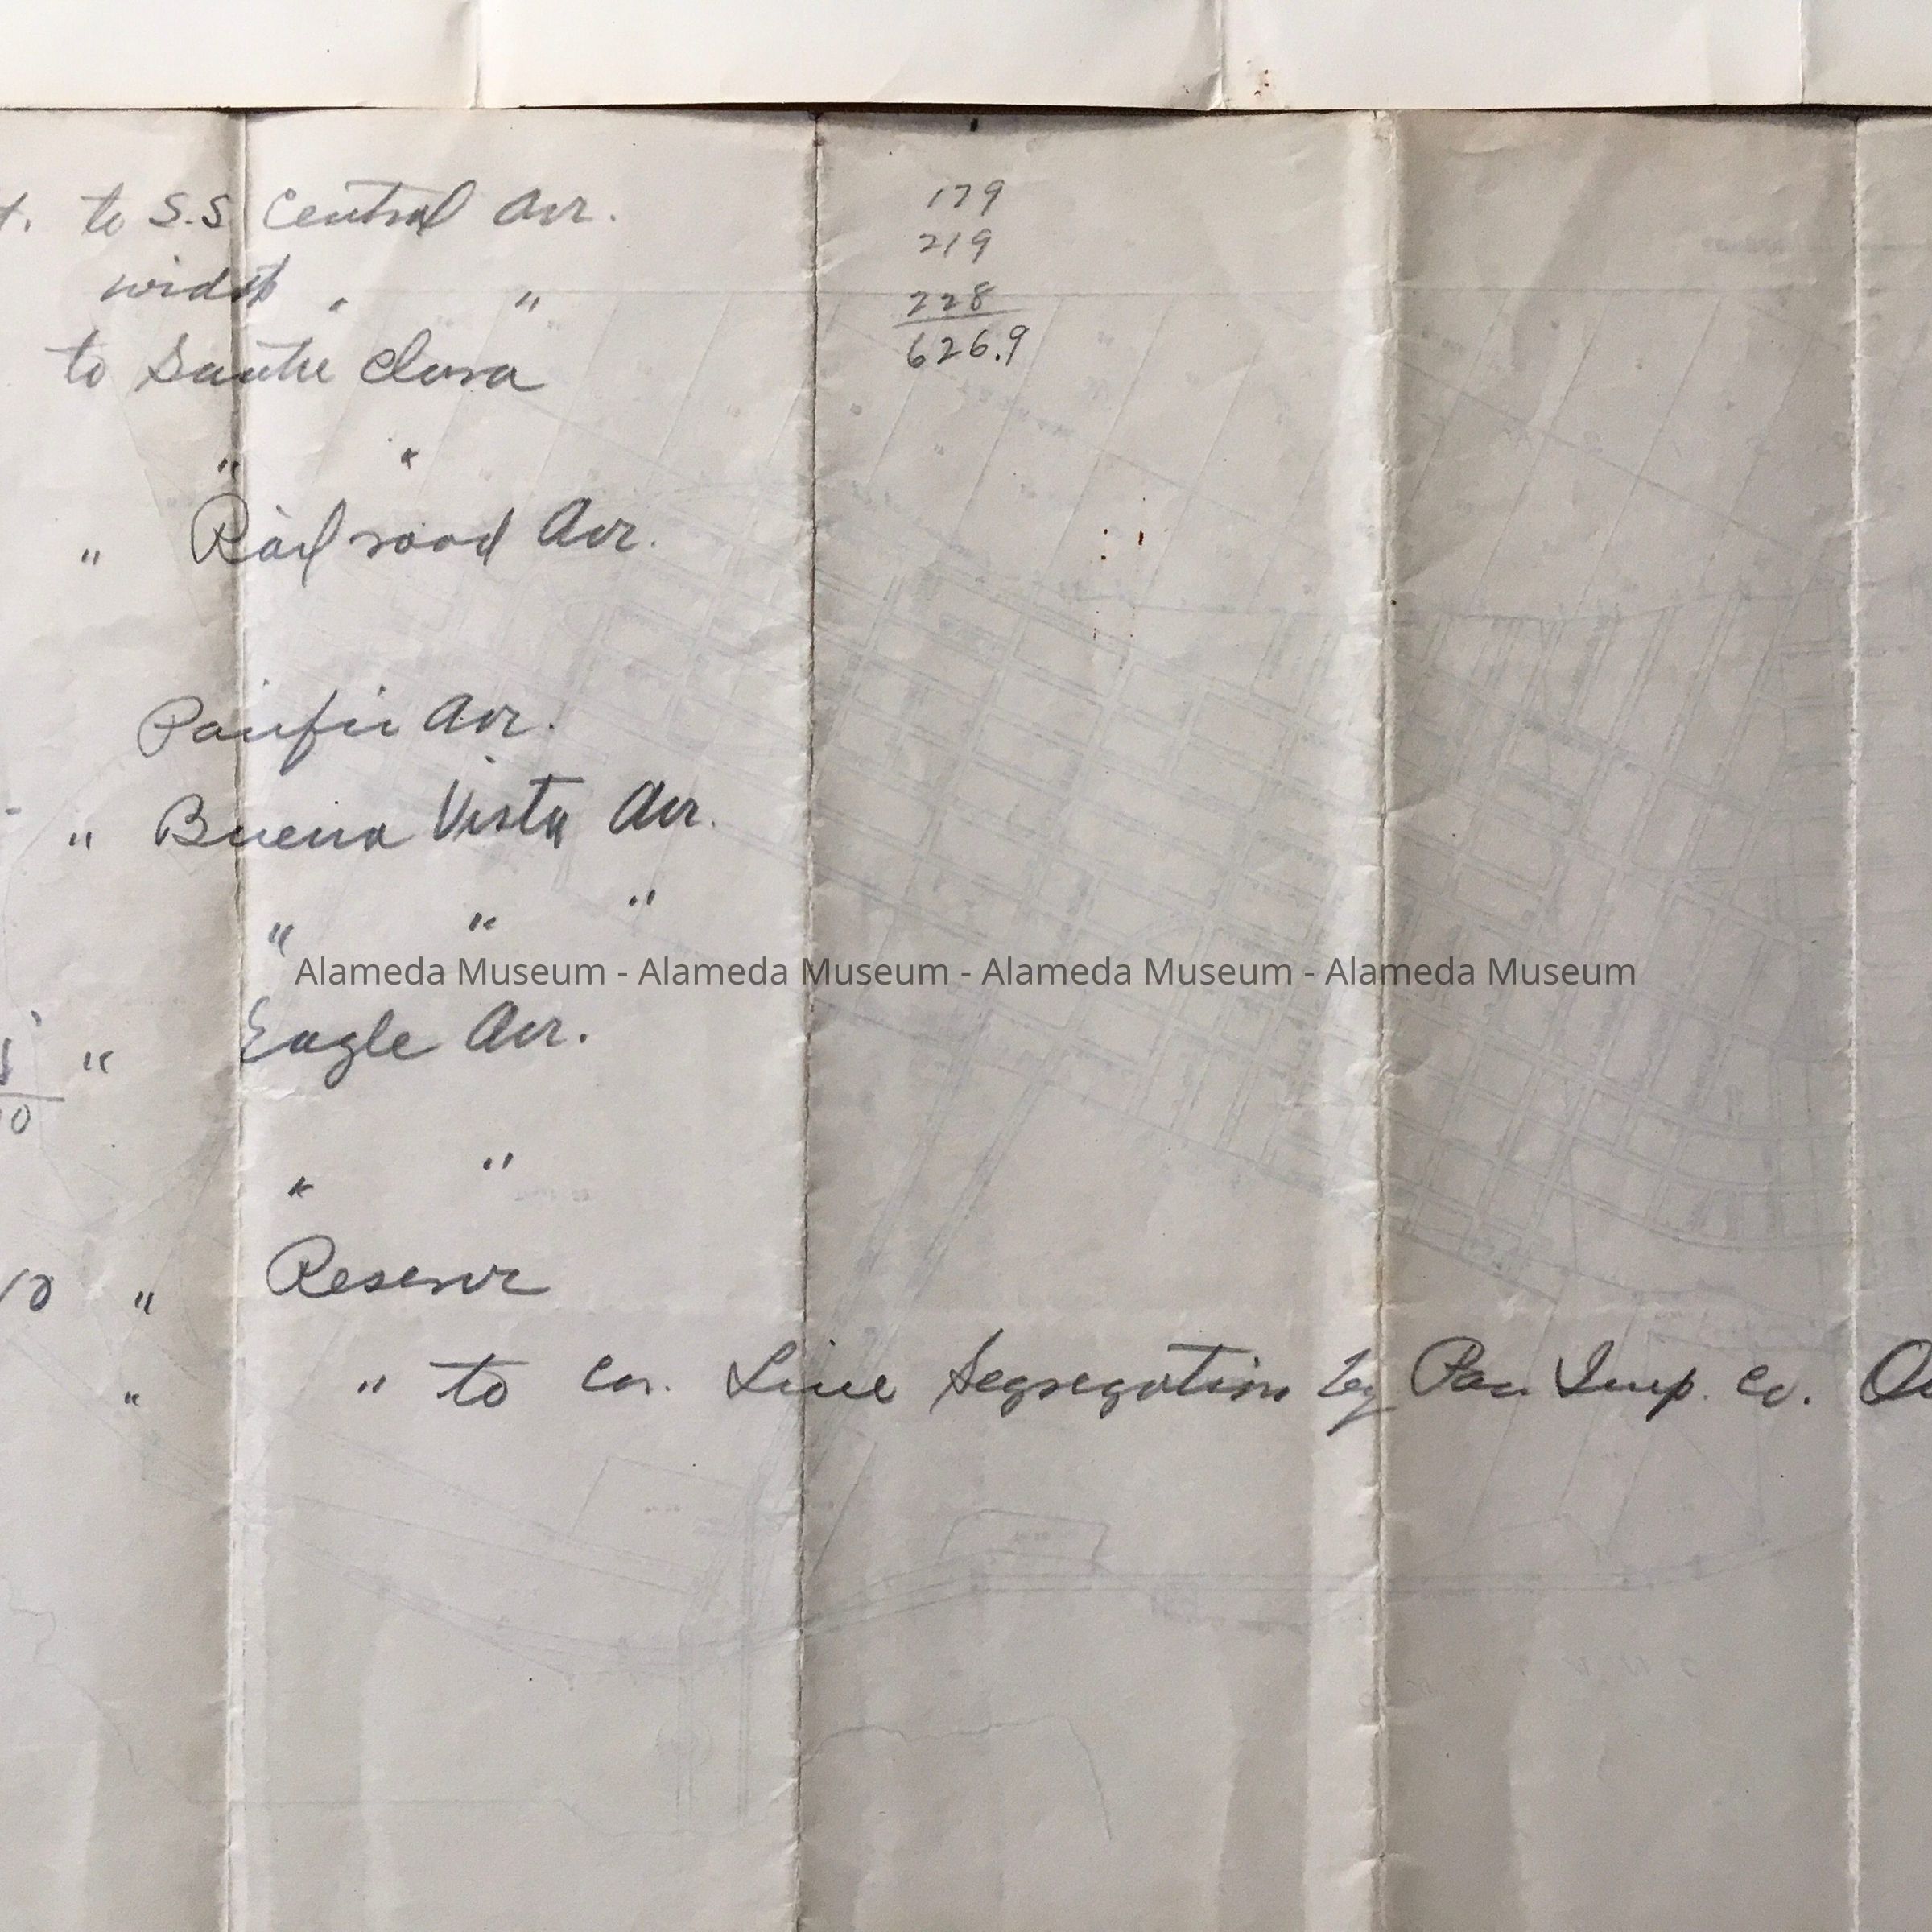 t. to S.S. Central Ave.
179
219
width " "
228
to Santa Clara
626.9
" "
" Railroad Ave.
Pacific Ave.
" Buena Vista Ave.
" " "
Alameda Museum - Alameda Museum - Alameda Museum - Alameda Museum
" Eagle Ave.
10
" "
" Reserve
" " to Cor. Line Segregation by Pac Imp. Co.